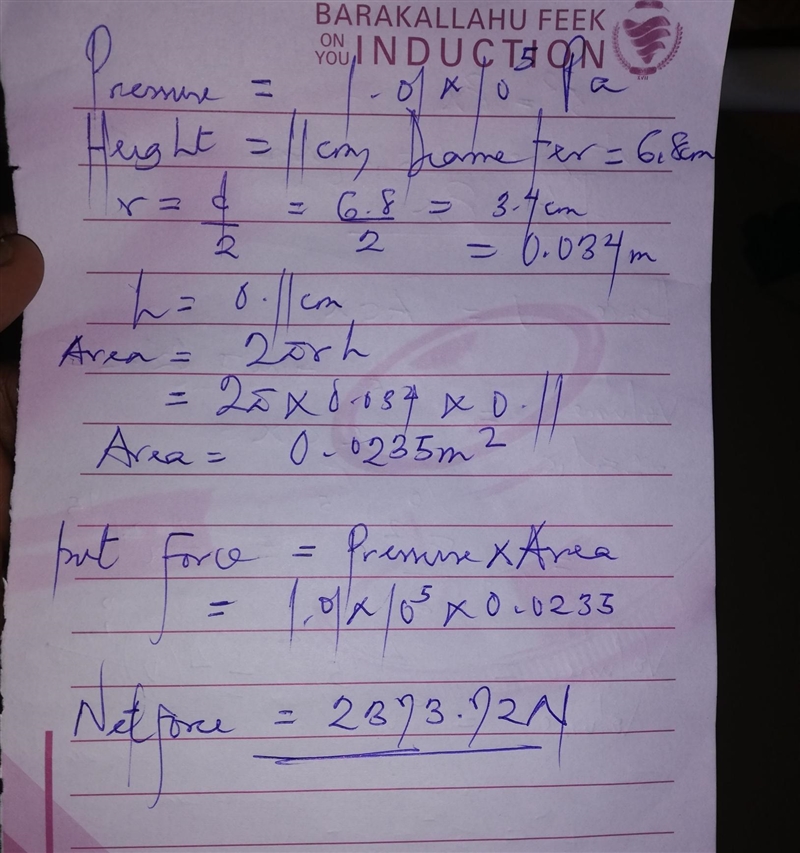 BARAKALLAHU FEEK
ON YOU INDUCTION
Pressure = 1.01 x 10⁵ Pa
Height = 11cm, Diameter = 6.8cm
r = d/2 = 6.8/2 = 3.4cm
= 0.034m
h = 0.11cm
Area = 2πrh
= 2π x 0.034 x 0.11
Area = 0.0235m²
but force = Pressure x Area
= 1.01 x 10⁵ x 0.0235
Net force = 2373.72N